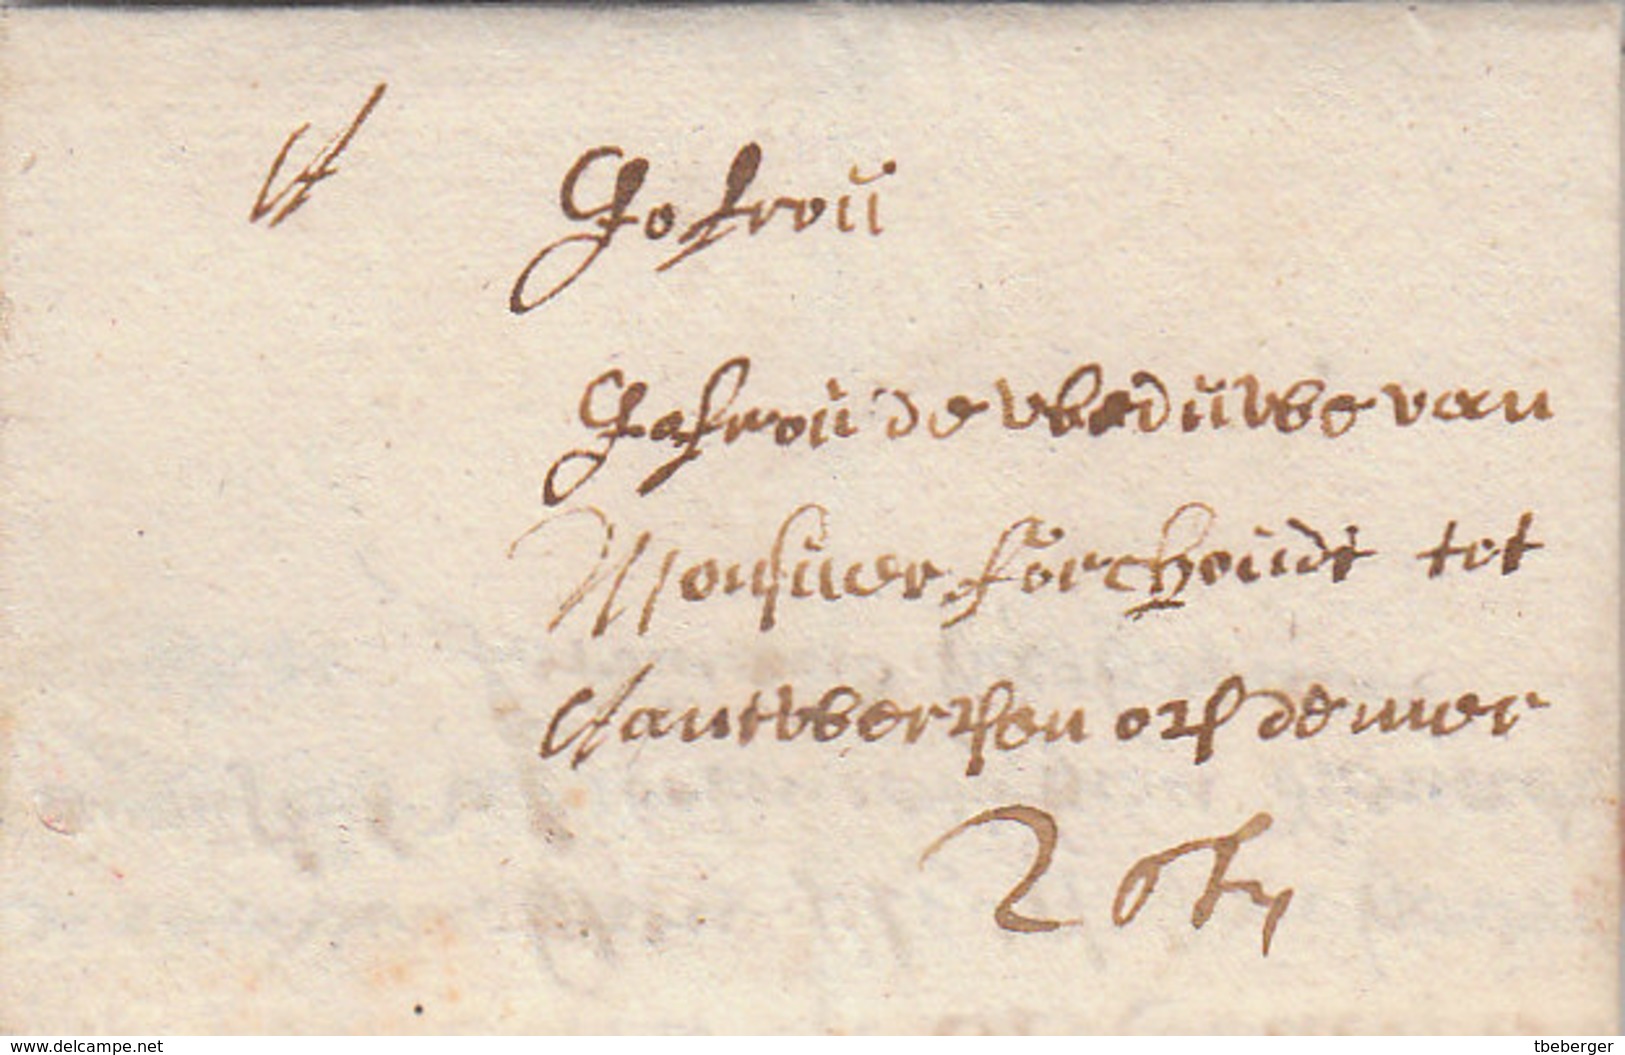 Jofrou
Jofrou de Weduwe van
Monsuer Forchoudt tot
Antwerpen op de meer
2 st
www.delcampe.net
tbeberger